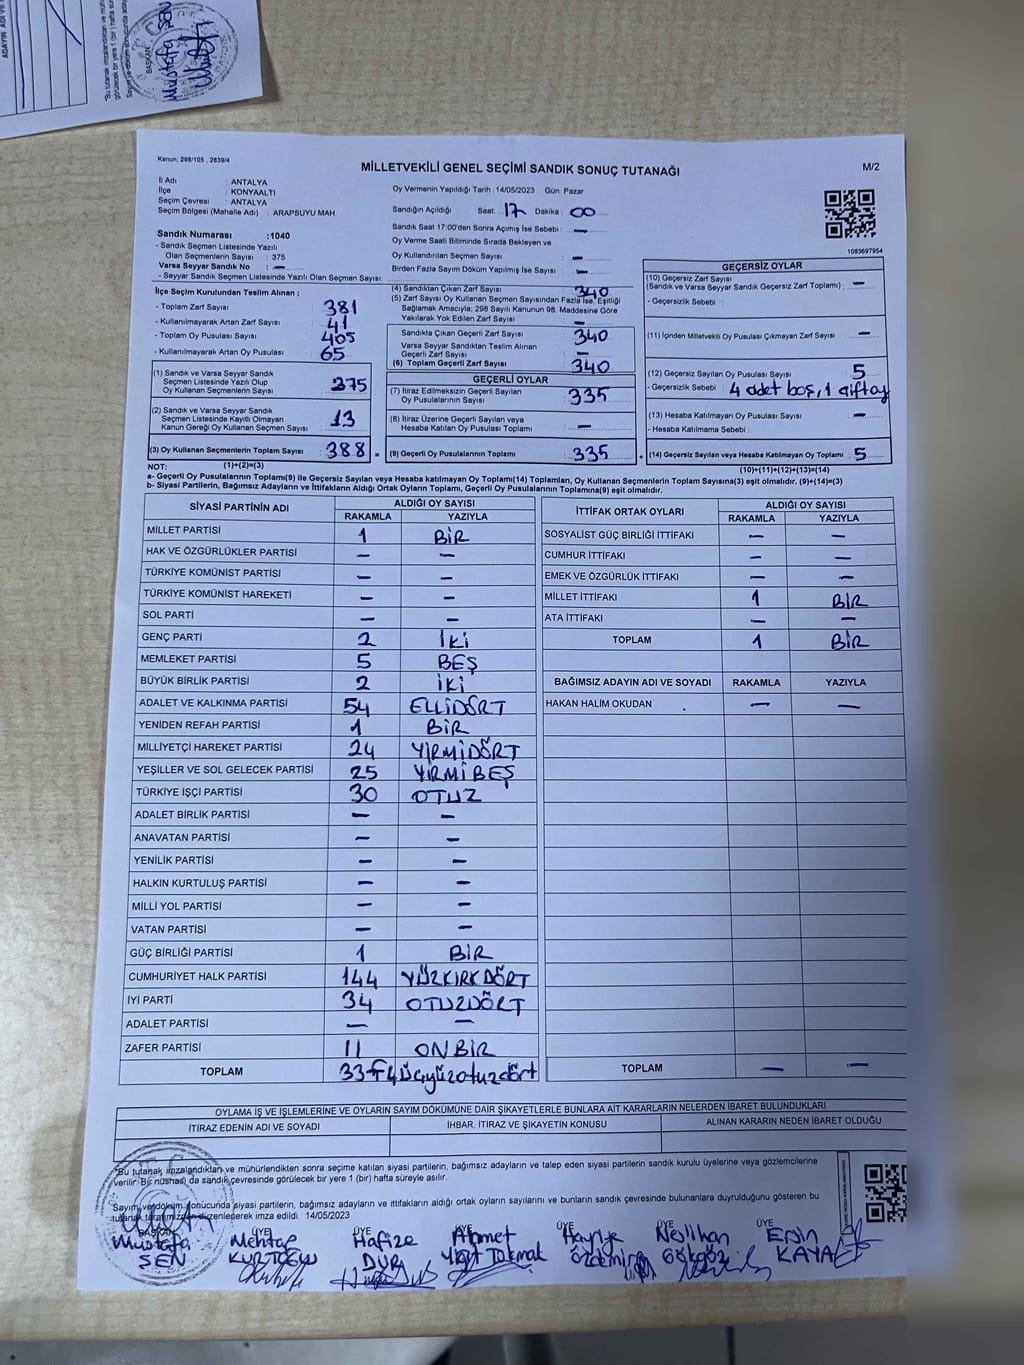 BAŞKAN
Mustafa ŞEN
Kanun; 298/105 , 2839/4
MİLLETVEKİLİ GENEL SEÇİMİ SANDIK SONUÇ TUTANAĞI
M/2
İl Adı : ANTALYA
İlçe : KONYAALTI
Seçim Çevresi : ANTALYA
Seçim Bölgesi (Mahalle Adı) : ARAPSUYU MAH
Oy Vermenin Yapıldığı Tarih :14/05/2023 Gün: Pazar
Sandığın Açıldığı Saat: 17 Dakika: 00
Sandık Saat 17:00'den Sonra Açılmış İse Sebebi: –
Oy Verme Saati Bitiminde Sırada Bekleyen ve
Oy Kullandırılan Seçmen Sayısı : –
Birden Fazla Sayım Döküm Yapılmış İse Sayısı : –
1083697954
Sandık Numarası :1040
- Sandık Seçmen Listesinde Yazılı
Olan Seçmenlerin Sayısı : 375
Varsa Seyyar Sandık No : –
- Seyyar Sandık Seçmen Listesinde Yazılı Olan Seçmen Sayısı:
İlçe Seçim Kurulundan Teslim Alınan ;
- Toplam Zarf Sayısı : 381
- Kullanılmayarak Artan Zarf Sayısı : 41
- Toplam Oy Pusulası Sayısı : 405
- Kullanılmayarak Artan Oy Pusulası : 65
(1) Sandık ve Varsa Seyyar Sandık
Seçmen Listesinde Yazılı Olup
Oy Kullanan Seçmenlerin Sayısı : 375
(2) Sandık ve Varsa Seyyar Sandık
Seçmen Listesinde Kayıtlı Olmayan
Kanun Gereği Oy Kullanan Seçmen Sayısı : 13
(3) Oy Kullanan Seçmenlerin Toplam Sayısı : 388 =
(4) Sandıktan Çıkan Zarf Sayısı : 340
(5) Zarf Sayısı Oy Kullanan Seçmen Sayısından Fazla İse, Eşitliği
Sağlamak Amacıyla; 298 Sayılı Kanunun 98. Maddesine Göre
Yakılarak Yok Edilen Zarf Sayısı : –
Sandıkta Çıkan Geçerli Zarf Sayısı : 340
Varsa Seyyar Sandıktan Teslim Alınan
Geçerli Zarf Sayısı : –
(6) Toplam Geçerli Zarf Sayısı : 340
GEÇERLİ OYLAR
(7) İtiraz Edilmeksizin Geçerli Sayılan
Oy Pusulalarının Sayısı : 335
(8) İtiraz Üzerine Geçerli Sayılan veya
Hesaba Katılan Oy Pusulası Toplamı : –
(9) Geçerli Oy Pusulalarının Toplamı : 335 +
GEÇERSİZ OYLAR
(10) Geçersiz Zarf Sayısı
(Sandık ve Varsa Seyyar Sandık Geçersiz Zarf Toplamı) : –
- Geçersizlik Sebebi :
(11) İçinden Milletvekili Oy Pusulası Çıkmayan Zarf Sayısı : –
(12) Geçersiz Sayılan Oy Pusulası Sayısı : 5
- Geçersizlik Sebebi : 4 adet boş, 1 çiftoy
(13) Hesaba Katılmayan Oy Pusulası Sayısı : –
- Hesaba Katılmama Sebebi :
(14) Geçersiz Sayılan veya Hesaba Katılmayan Oy Toplamı : 5
NOT: (1)+(2)=(3) (10)+(11)+(12)+(13)=(14)
a- Geçerli Oy Pusulalarının Toplamı(9) ile Geçersiz Sayılan veya Hesaba katılmayan Oy Toplamı(14) Toplamları, Oy Kullanan Seçmenlerin Toplam Sayısına(3) eşit olmalıdır. (9)+(14)=(3)
b- Siyasi Partilerin, Bağımsız Adayların ve İttifakların Aldığı Ortak Oyların Toplamı, Geçerli Oy Pusulalarının Toplamına(9) eşit olmalıdır.
SİYASİ PARTİNİN ADI ALDIĞI OY SAYISI
RAKAMLA YAZIYLA
MİLLET PARTİSİ 1 BİR
HAK VE ÖZGÜRLÜKLER PARTİSİ – –
TÜRKİYE KOMÜNİST PARTİSİ – –
TÜRKİYE KOMÜNİST HAREKETİ – –
SOL PARTİ – –
GENÇ PARTİ 2 İKİ
MEMLEKET PARTİSİ 5 BEŞ
BÜYÜK BİRLİK PARTİSİ 2 İKİ
ADALET VE KALKINMA PARTİSİ 54 ELLİDÖRT
YENİDEN REFAH PARTİSİ 1 BİR
MİLLİYETÇİ HAREKET PARTİSİ 24 YİRMİDÖRT
YEŞİLLER VE SOL GELECEK PARTİSİ 25 YİRMİBEŞ
TÜRKİYE İŞÇİ PARTİSİ 30 OTUZ
ADALET BİRLİK PARTİSİ – –
ANAVATAN PARTİSİ – –
YENİLİK PARTİSİ – –
HALKIN KURTULUŞ PARTİSİ – –
MİLLİ YOL PARTİSİ – –
VATAN PARTİSİ – –
GÜÇ BİRLİĞİ PARTİSİ 1 BİR
CUMHURİYET HALK PARTİSİ 144 YÜZKIRKDÖRT
İYİ PARTİ 34 OTUZDÖRT
ADALET PARTİSİ – –
ZAFER PARTİSİ 11 ONBİR
TOPLAM 334 üçyüzotuzdört
İTTİFAK ORTAK OYLARI ALDIĞI OY SAYISI
RAKAMLA YAZIYLA
SOSYALİST GÜÇ BİRLİĞİ İTTİFAKI – –
CUMHUR İTTİFAKI – –
EMEK VE ÖZGÜRLÜK İTTİFAKI – –
MİLLET İTTİFAKI 1 BİR
ATA İTTİFAKI – –
TOPLAM 1 BİR
BAĞIMSIZ ADAYIN ADI VE SOYADI RAKAMLA YAZIYLA
HAKAN HALİM OKUDAN – –
TOPLAM – –
OYLAMA İŞ VE İŞLEMLERİNE VE OYLARIN SAYIM DÖKÜMÜNE DAİR ŞİKAYETLERLE BUNLARA AİT KARARLARIN NELERDEN İBARET BULUNDUKLARI
İTİRAZ EDENİN ADI VE SOYADI İHBAR, İTİRAZ VE ŞİKAYETİN KONUSU ALINAN KARARIN NEDEN İBARET OLDUĞU
"Bu tutanak imzalandıktan ve mühürlendikten sonra seçime katılan siyasi partilerin, bağımsız adayların ve talep eden siyasi partilerin sandık kurulu üyelerine veya gözlemcilerine
verilir. Bir nüshası da sandık çevresinde görülecek bir yere 1 (bir) hafta süreyle asılır.
Sayım ve döküm sonucunda siyasi partilerin, bağımsız adayların ve ittifakların aldığı ortak oyların sayılarını ve bunların sandık çevresinde bulunanlara duyrulduğunu gösteren bu
tutanak tarafımızdan düzenlenerek imza edildi. 14/05/2023
BAŞKAN ÜYE ÜYE ÜYE ÜYE ÜYE ÜYE
Mustafa ŞEN
Mehtap KURTOĞLU
Hafize DUR
Ahmet Yiğit Tokmak
Hayriye Özdemir
Neslihan Gökgöz
Ersin KAYA